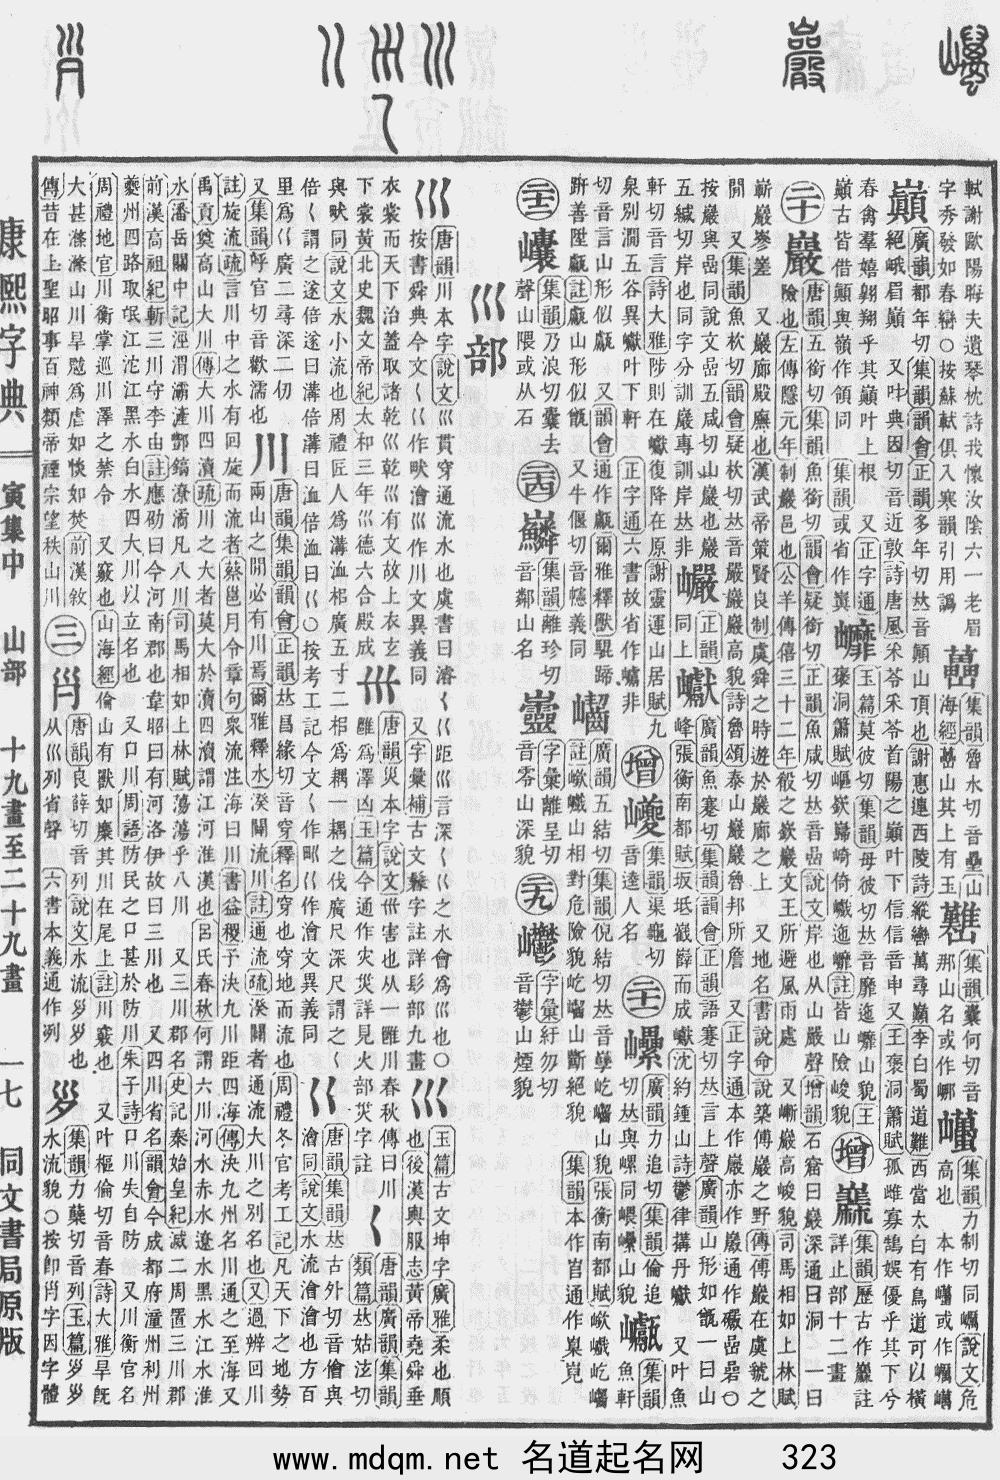 軾謝歐陽晦夫遺琴枕詩我懷汝陰六一老眉
字秀發如春巒○按蘇軾俱入寒韻引用譌
集韻魯水切音壘山
海經山其上有玉
集韻囊何切音
那山名或作
集韻力制切同巁說文危
高也 本作巁或作
巔
廣韻都年切集韻韻會正韻多年切𠀤音顚山頂也謝惠連西陵詩縱轡萬尋巔李白蜀道難西當太白有鳥道可以橫
絕峨眉巔 又叶典因切音近敦詩唐風采苓采苓首陽之巔叶下信信音申又王褒洞簫賦孤雌寡鶴娛優乎其下兮
春禽羣嬉翱翔乎其巔叶上根 又正字通
巔古皆借顚與嶺作領同 集韻或省作巓
玉篇莫彼切集韻母彼切𠀤音靡迤㠧山貌王
褒洞簫賦嶇嶔巋崎倚巇迤㠧註皆山險峻貌
增
集韻歷古作巖註
詳止部十二畫
二十
巖
唐韻五銜切集韻魚銜切韻會疑銜切正韻魚咸切𠀤音嵒說文岸也从山嚴聲增韻石窟曰巖深通曰洞 一曰
險也左傳隱元年制巖邑也公羊傳僖三十二年殽之嶔巖文王所避風雨處 又嶄巖高峻貌司馬相如上林賦
嶄巖嵾嵳 又巖廊殿廡也漢武帝策賢良制虞舜之時遊於巖廊之上 又地名書說命說築傅巖之野傳傅巖在虞虢之
閒 又集韻魚杴切韻會疑杴切𠀤音嚴巖巖高貌詩魯頌泰山巖巖魯邦所詹 又正字通本作嚴亦作巗通作礹嵒碞○
按巖與嵒同說文嵒五咸切山巖也巖
五緘切岸也同字分訓巖專訓岸𠀤非
巘
正韻
同上
巘
廣韻魚蹇切集韻韻會正韻語蹇切𠀤言上聲廣韻山形如甑一曰山
峰張衡南都賦坂坻嶻嶭而成巘沈約鍾山詩鬱律搆丹巘 又叶魚
軒切音言詩大雅陟則在巘復降在原謝靈運山居賦九
泉別澗五谷異巘叶下軒 正字通六書故省作㠢非
增
巙
集韻渠龜切
音逵人名
二十一
廣韻力追切集韻倫追
切𠀤與㠥同山貌
集韻
魚軒
切音言山形似甗 又韻會通作甗爾雅釋獸騉蹄
趼善陞甗註甗山形似甑 又牛偃切音巘義同
廣韻五結切集韻倪結切𠀤音孽屹山貌張衡南都賦嶔巇屹
註嶔巇山相對危險貌屹山斷絕貌 集韻本作岊通作臬臲
二十二
巎
集韻乃浪切囊去
聲山隈或从石
二十四
集韻離珍切
音鄰山名
字彙離呈切
音零山深貌
二十九
字彙紆勿切
音鬱山煙貌
巛部
巛
唐韻川本字說文巛貫穿通流水也虞書曰濬𡿨巜距巛言深𡿨巜之水會爲巛也○
按書舜典今文𡿨巜作畎澮巛作川文異義同 又字彙補古文鬊字註詳髟部九畫
巛
玉篇古文坤字廣雅柔也順
也後漢輿服志黃帝堯舜垂
衣裳而天下治蓋取諸乾巛乾巛有文故上衣玄
下裳黃北史魏文帝紀太和三年巛德六合殿成
𡿧
唐韻災本字說文𡿧害也从一雝川春秋傳曰川
雝爲澤凶玉篇今通作灾災詳見火部災字註
𡿨
唐韻廣韻集韻
類篇𠀤姑泫切
與畎同說文水小流也周禮匠人爲溝洫相廣五寸二相爲耦一耦之伐廣尺深尺謂之𡿨
倍𡿨謂之遂倍遂曰溝倍溝曰洫倍洫曰巜○按考工記今文𡿨作甽巜作澮文異義同
巜
唐韻集韻𠀤古外切音儈與
澮同說文水流澮澮也方百
里爲巜廣二尋深二仞
又集韻呼官切音歡濡也
川
唐韻集韻韻會正韻𠀤昌緣切音穿釋名穿也穿地而流也周禮冬官考工記凡天下之地勢
兩山之閒必有川焉爾雅釋水湀闢流川註通流疏湀闢者通流大川之別名也又過辨回川
註旋流疏言川中之水有回旋而流者蔡邕月令章句衆流注海曰川書益稷予決九川距四海傳決九州名川通之至海又
禹貢奠高山大川傳大川四瀆疏川之大者莫大於瀆四瀆謂江河淮漢也呂氏春秋何謂六川河水赤水遼水黑水江水淮
水潘岳關中記涇渭灞滻酆鎬潦潏凡八川司馬相如上林賦蕩蕩乎八川 又三川郡名史記秦始皇紀滅二周置三川郡
前漢高祖紀斬三川守李由註應劭曰今河南郡也韋昭曰有河洛伊故曰三川也 又四川省名韻會今成都府潼州利州
夔州四路取岷江沱江黑水白水四大川以立名也 又口川周語防民之口甚於防川朱子詩口川失自防 又川衡官名
周禮地官川衡掌巡川澤之禁令 又竅也山海經倫山有獸如麋其川在尾上註川竅也 又叶樞倫切音春詩大雅旱旣
大甚滌滌山川旱魃爲虐如惔如焚前漢敘
傳昔在上聖昭事百神類帝禋宗望秩山川
三
唐韻良薛切音列說文水流𡿪𡿪也
从巛列省聲 六書本義通作列
集韻力蘖切音列玉篇𡿪𡿪
水流貌○按卽字因字體
康熙字典
寅集中 山部 十九畫至二十九畫
一七 同文書局原版
www.mdqm.net 名道起名网 323